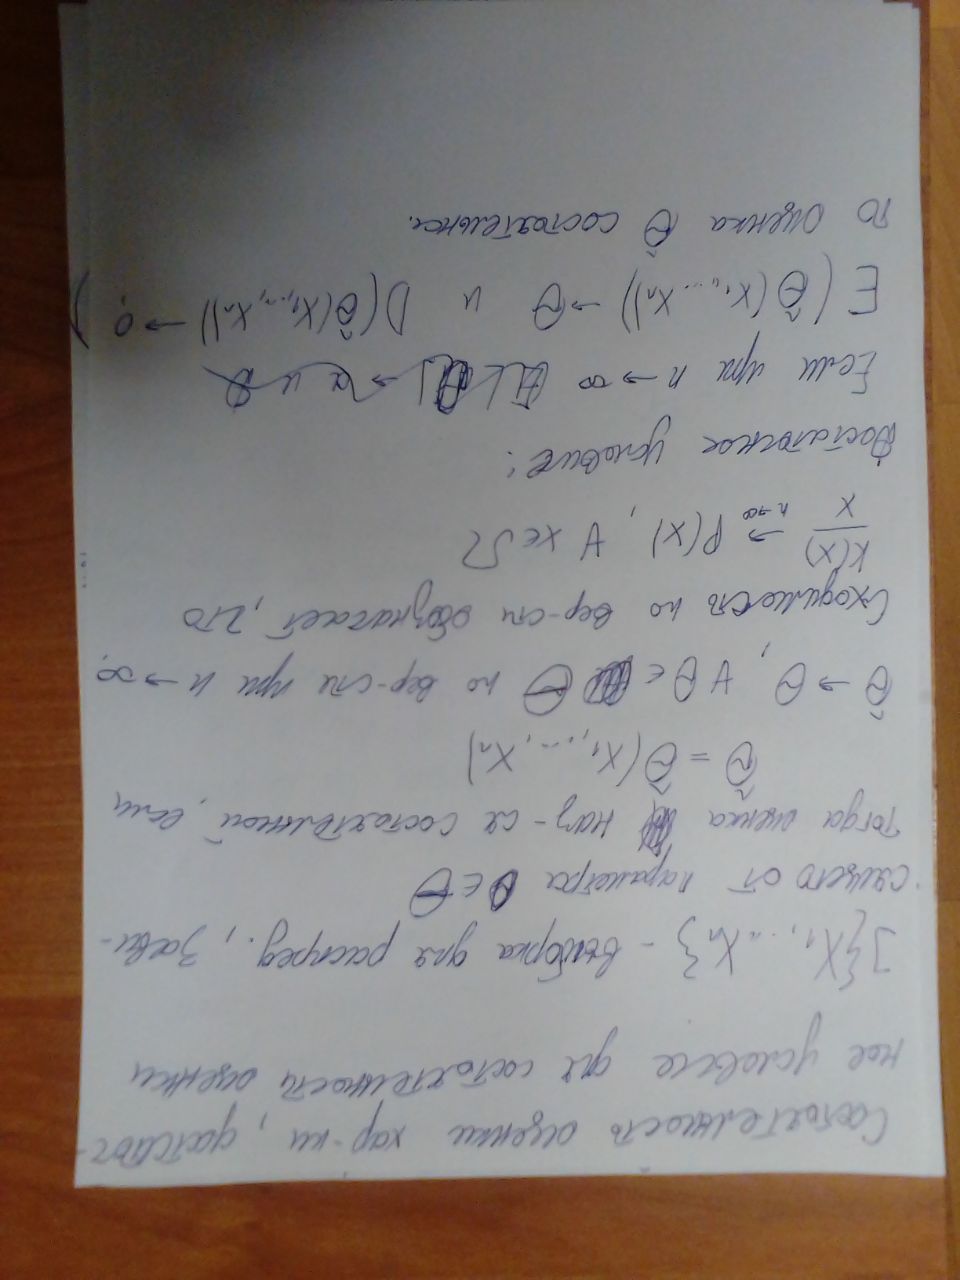 Состоятельность оценки хар-ки, достаточ-
ное условие для состоятельности оценки
∃{X₁, ... Xₙ} - выборка для распред., зави-
сящего от параметра θ ∈ Θ
тогда оценка наз-ся состоятельной, если
θ̃ = θ̃(X₁, ..., Xₙ)
θ̃ → θ, ∀ θ ∈ Θ по вер-сти при n → ∞.
Сходимость по вер-сти обозначает, что
K(X)/X →ₙ→∞ P(X), ∀ x ∈ Ω
Достаточное условие:
Если при n → ∞
E(θ̃(X₁, ... Xₙ)) → θ и D(θ̃(X₁, ..., Xₙ)) → 0,
то оценка θ̃ состоятельная.